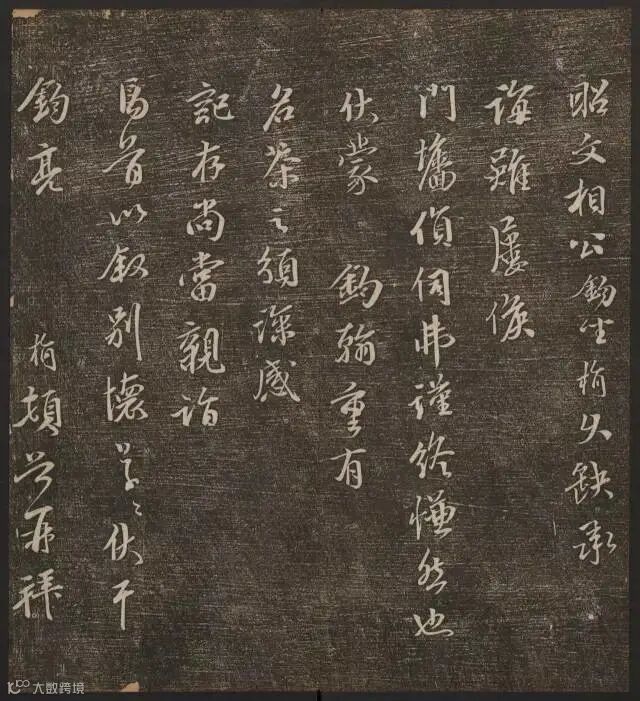 昭文相公鈞坐久缺承
誨雖屢候
門墻偵伺弗謹終慊然也
伏蒙 鈞翰重有
名茶之頒深感
記存尚當親詣
馬首以敘別懷草〻伏干
鈞亮 頓首再拜
大数跨境